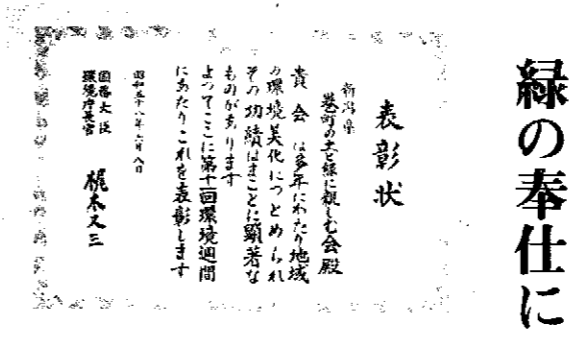 緑の奉仕に
表彰状
新潟県
巻町の土と緑に親しむ会殿
貴会は多年にわたり地域
の環境美化につとめられ
その功績はまことに顕著な
ものがあります
よってここに第十一回環境週間
にあたりこれを表彰します
昭和五十八年六月八日
国務大臣
環境庁長官
梶木又三